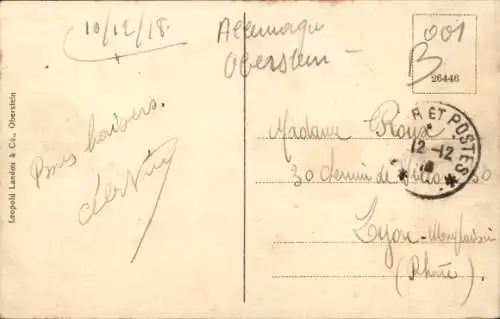 10/12/18.
Allemagne
Oberstein
001
B
26446
Leopold Landes & Co., Oberstein
Bons baisers.
R ET POSTES
12-12
18
Madame Roux
30 chemin de
30
Lyon-Monplaisir
(Rhône)